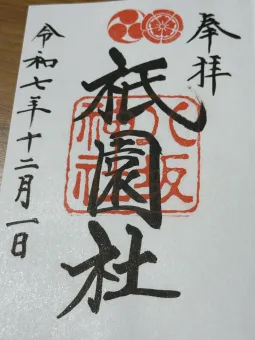 奉拝
祇園社
八坂神社
令和七年十二月一日